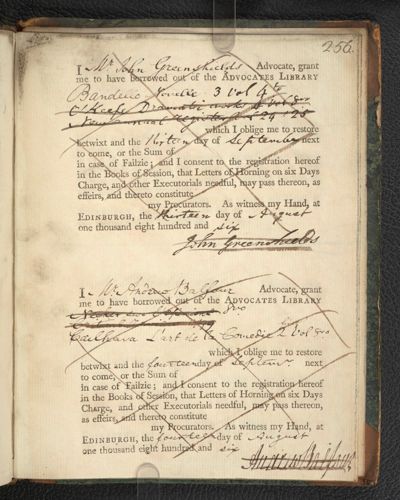 256.
I Mr John Greenshields Advocate, grant
me to have borrowed out of the ADVOCATES LIBRARY
Bandello Novelle 3 Vol 4to
O'Keefe Dramatic works 4 Vol 8vo
New Annual Register 24 25
which I oblige me to restore
betwixt and the thirteen day of September next
to come, or the Sum of
in case of Failzie; and I consent to the registration hereof
in the Books of Session, that Letters of Horning on six Days
Charge, and other Executorials needful, may pass thereon, as
effeirs, and thereto constitute
my Procurators. As witness my Hand, at
EDINBURGH, the thirteen day of August
one thousand eight hundred and six
John Greenshields
I Mr Andrew Balfour Advocate, grant
me to have borrowed out of the ADVOCATES LIBRARY
8vo
Cailhava L'art de la Comedie 2 Vol 8vo
which I oblige me to restore
betwixt and the fourteen day of Septemr next
to come, or the Sum of
in case of Failzie; and I consent to the registration hereof
in the Books of Session, that Letters of Horning on six Days
Charge, and other Executorials needful, may pass thereon, as
effeirs, and thereto constitute
my Procurators. As witness my Hand, at
EDINBURGH, the fourteen day of August
one thousand eight hundred and six
Andrew Balfour